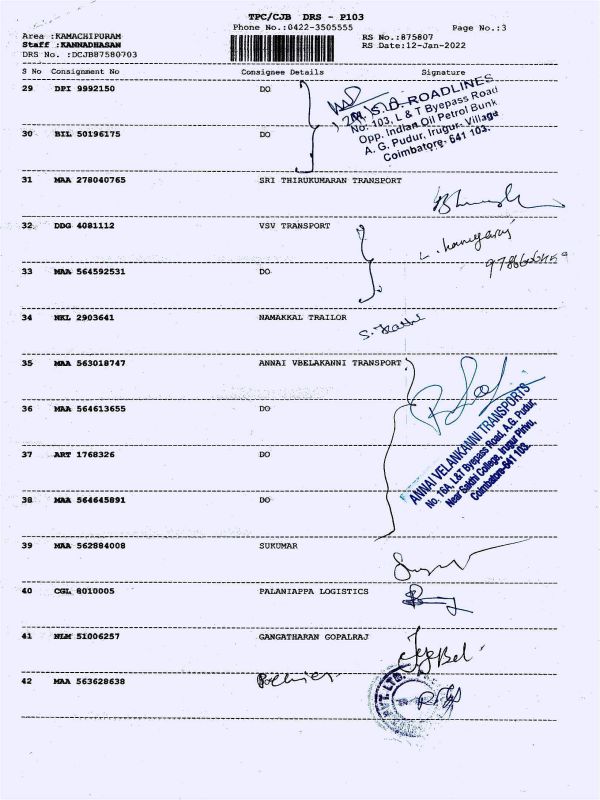 TPC/CJB DRS - P103
Phone No.:0422-3505555
Page No.:3
Area :KAMACHIPURAM
RS No.:875807
Staff :KANNADHASAN
RS Date:12-Jan-2022
DRS No. :DCJB87580703
S No Consignment No Consignee Details Signature
29 DPI 9992150 DO
S.D. ROADLINES
No: 103, L & T Byepass Road
Opp. Indian Oil Petrol Bunk
A. G. Pudur, Irugur. Village
Coimbatore- 641 103.
30 BIL 50196175 DO
31 MAA 278040765 SRI THIRUKUMARAN TRANSPORT
32 DDG 4081112 VSV TRANSPORT
33 MAA 564592531 DO
34 NKL 2903641 NAMAKKAL TRAILOR
35 MAA 563018747 ANNAI VBELAKANNI TRANSPORT
36 MAA 564613655 DO
ANNAI VELANKANNI TRANSPORTS
No. 16A, L&T Byepass Road, A.G. Pudur,
Near Sakthi College, Irugur Pirivu,
Coimbatore-641 103.
37 ART 1768326 DO
38 MAA 564645891 DO
39 MAA 562884008 SUKUMAR
40 CGL 8010005 PALANIAPPA LOGISTICS
41 NLM 51006257 GANGATHARAN GOPALRAJ
42 MAA 563628638
PVT. LTD.